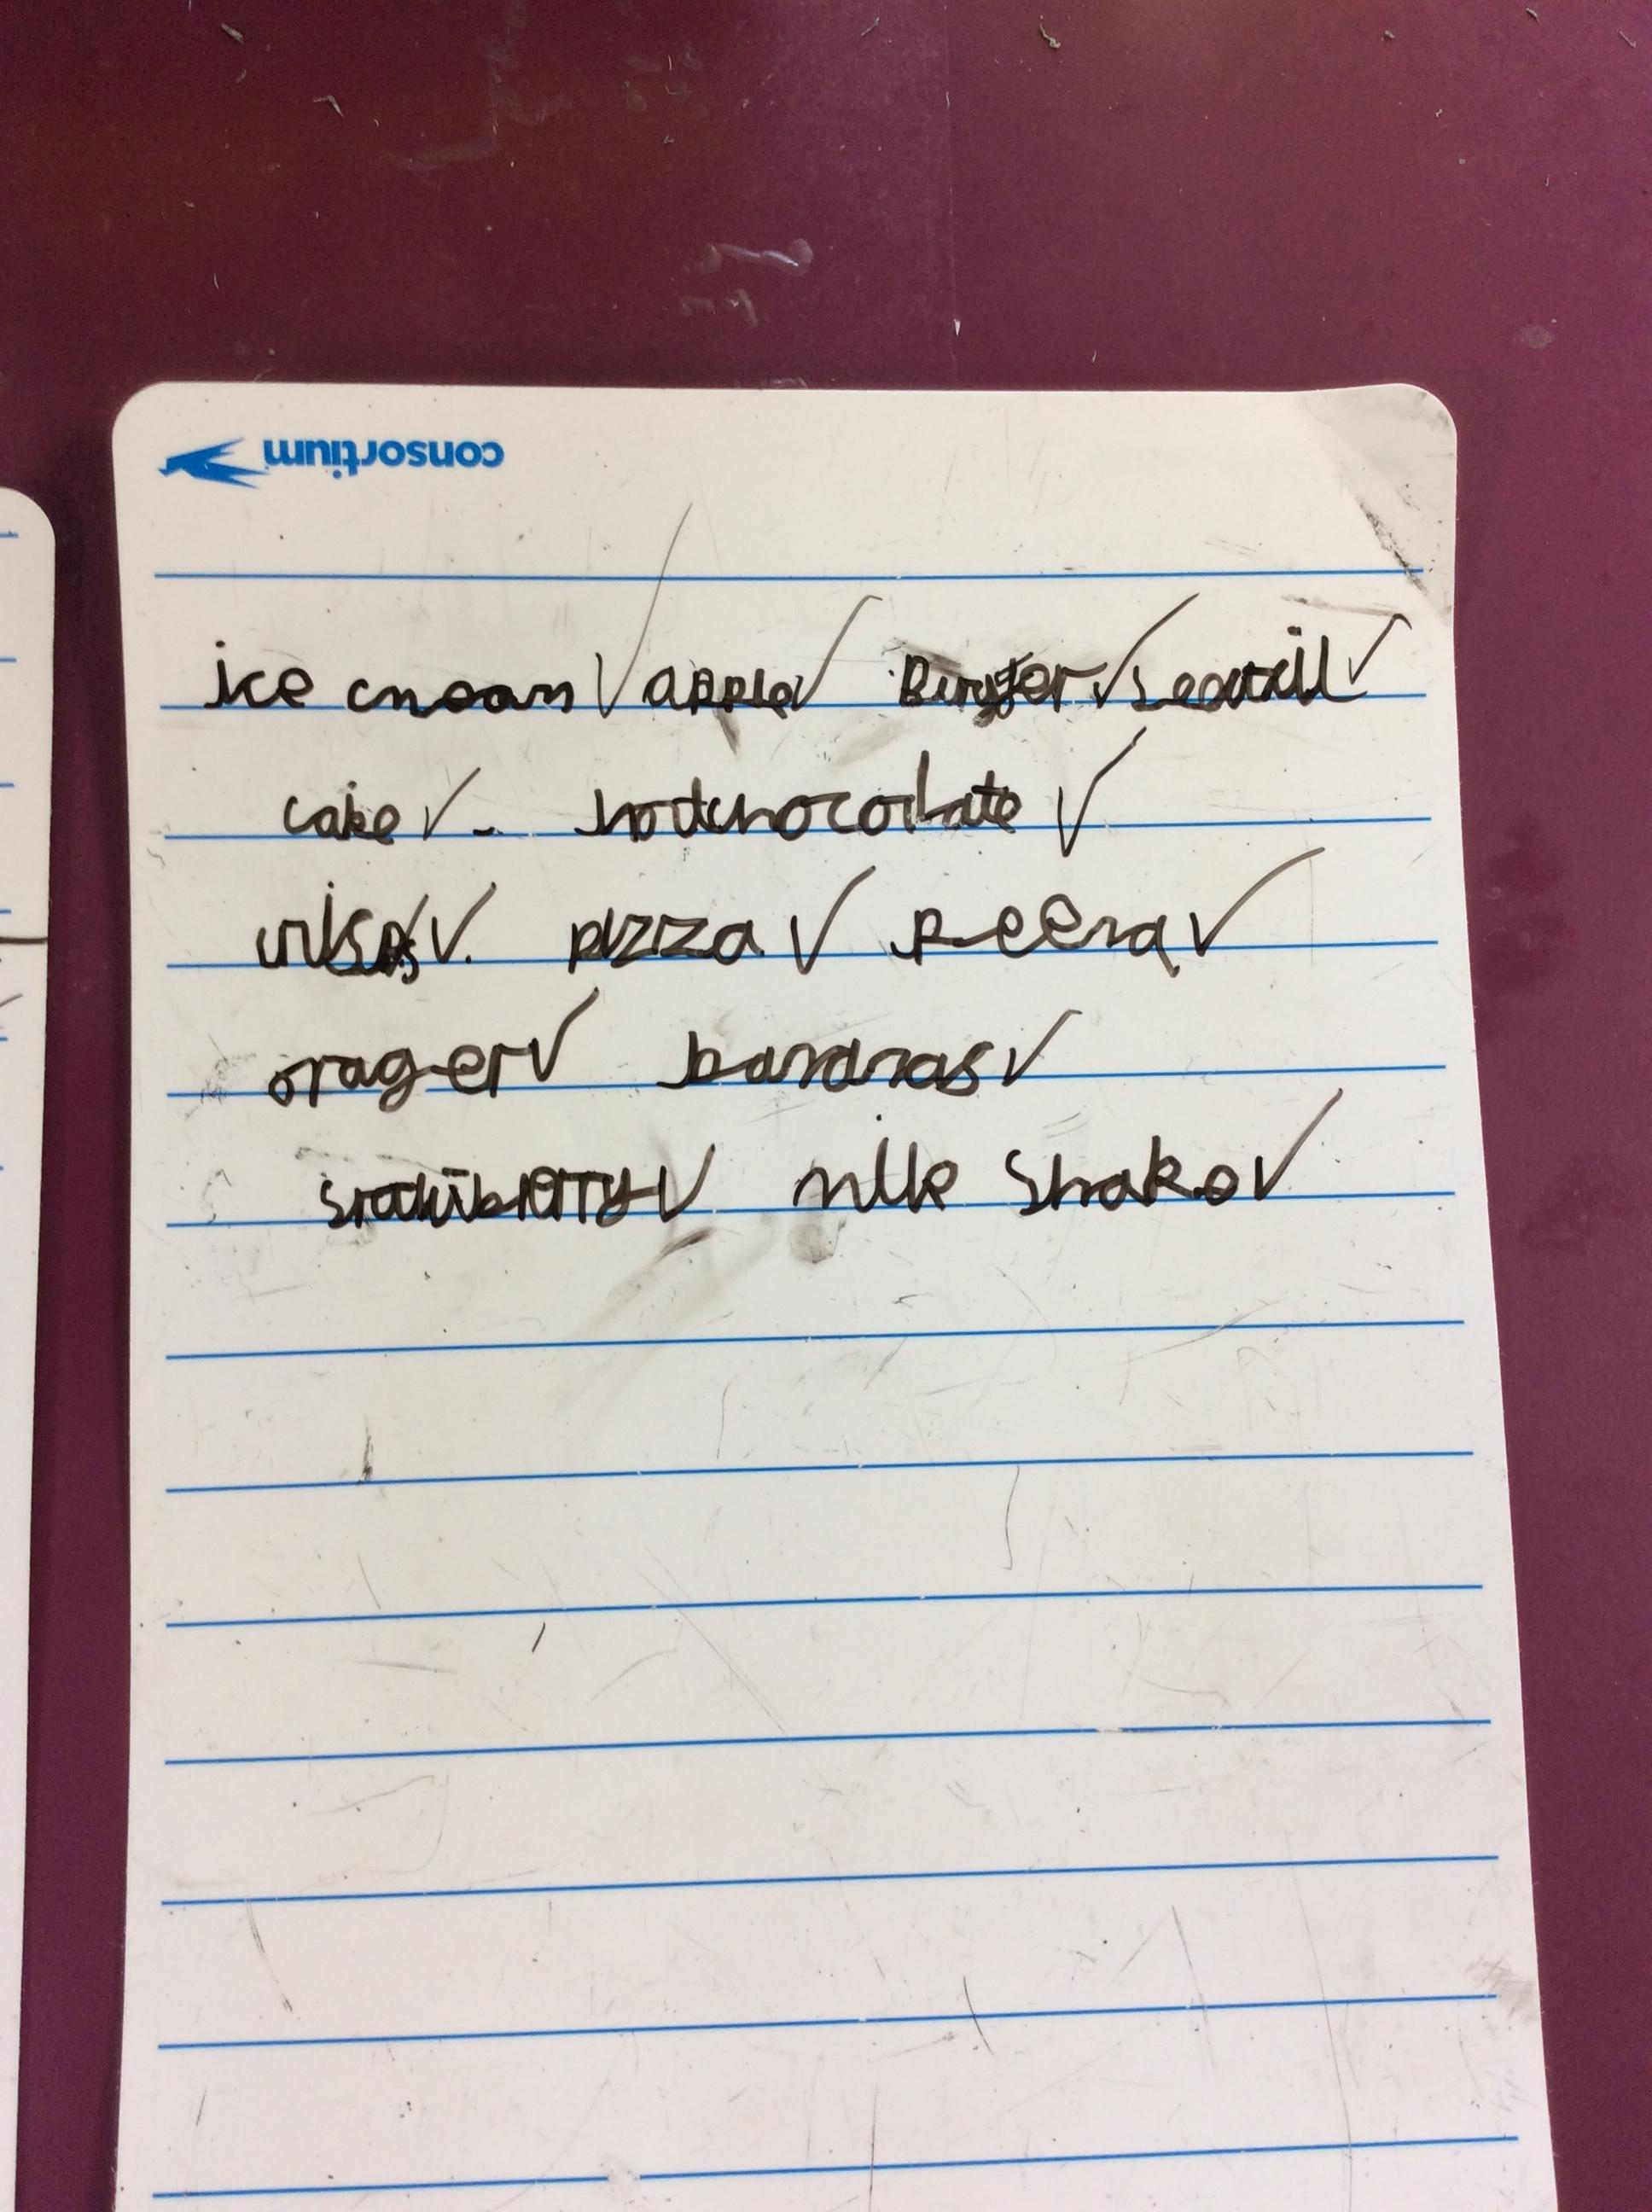 consortium
ice cream apple Burger
cake hotchocolate
crisps pizza
orager bananas
milk shake